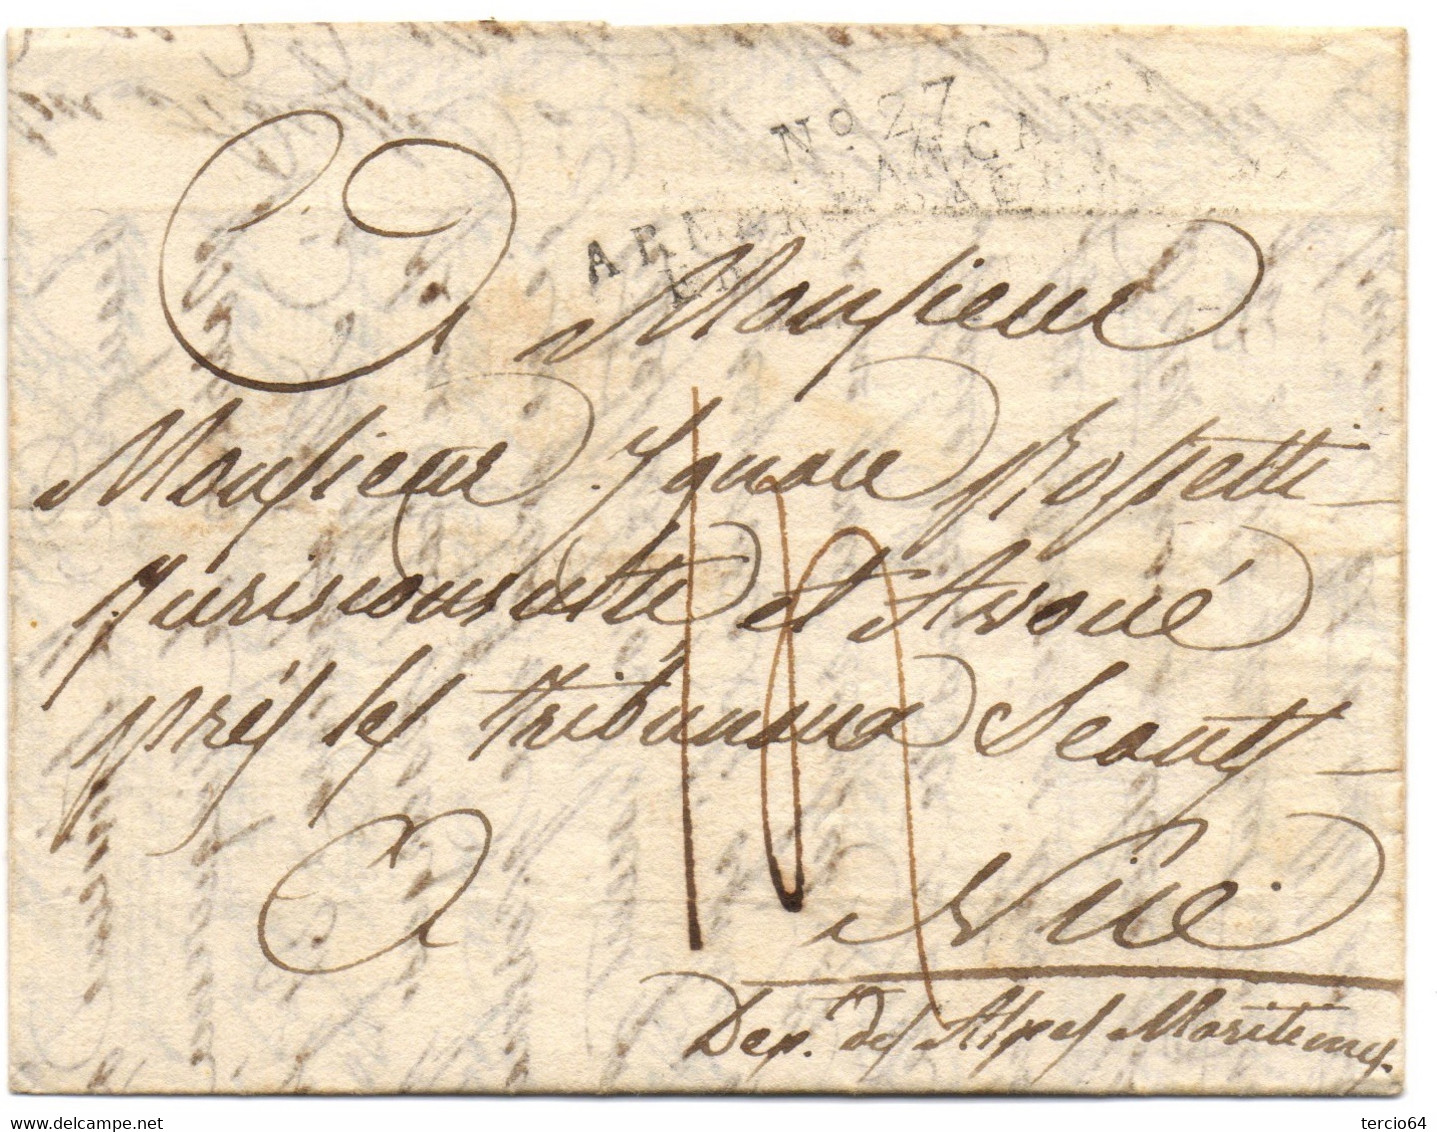 No. 27
ARM. FRANÇAISE
EN ESPAGNE
A Monsieur
Monsieur Ignace Rossetti
Jurisconsulte et Avoué
près les tribunaux Seants
A Nice
Dep.t des Alpes Maritimes.
www.delcampe.net
tercio64